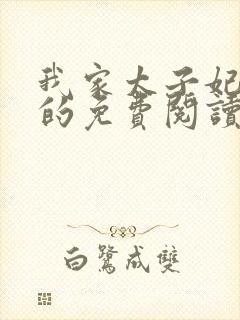 我家太子妃
的免費閱讀
白鷺成雙